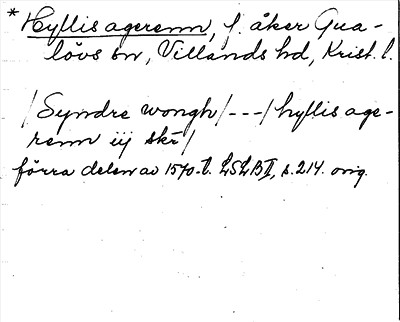 * Hyllis agerenn, f. åker Gua-
lövs sn, Villands hd, Krist. l.
/Syndre wongh/---/hyllis age-
renn iij skr/
förra delen av 1570-t. LSLB II, s. 214. orig.